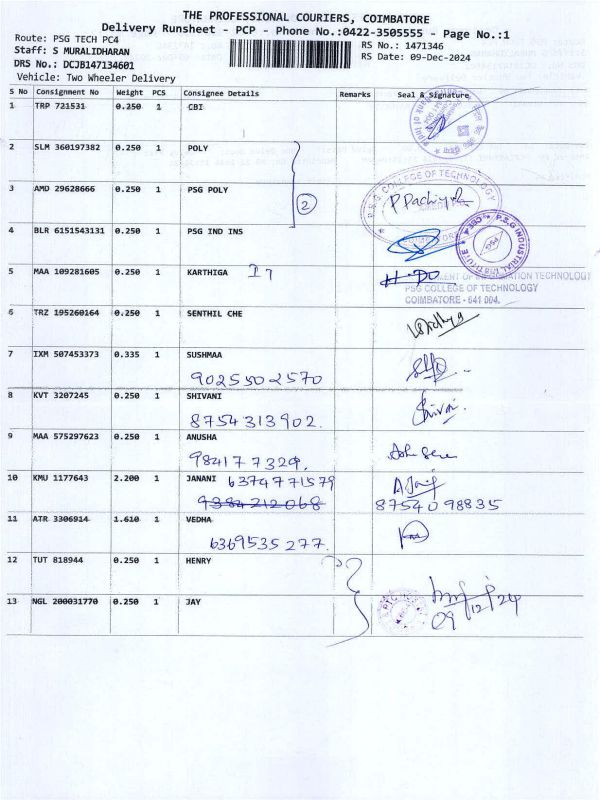 THE PROFESSIONAL COURIERS, COIMBATORE
Delivery Runsheet - PCP - Phone No.:0422-3505555 - Page No.:1
Route: PSG TECH PC4
RS No.: 1471346
Staff: S MURALIDHARAN
RS Date: 09-Dec-2024
DRS No.: DCJB147134601
Vehicle: Two Wheeler Delivery
S No Consignment No Weight PCS Consignee Details Remarks Seal & Signature
1 TRP 721531 0.250 1 CBI
2 SLM 360197382 0.250 1 POLY
3 AMD 29628666 0.250 1 PSG POLY
2
P.S.G COLLEGE OF TECHNOLOGY
4 BLR 6151543131 0.250 1 PSG IND INS
P.S.G INDUSTRIAL INSTITUTE
PSG
5 MAA 109281605 0.250 1 KARTHIGA IT
INFORMATION TECHNOLOGY
PSG COLLEGE OF TECHNOLOGY
COIMBATORE - 641 004.
6 TRZ 195260164 0.250 1 SENTHIL CHE
7 IXM 507453373 0.335 1 SUSHMAA
9025502570
8 KVT 3207245 0.250 1 SHIVANI
8754313902.
Shivani
9 MAA 575297623 0.250 1 ANUSHA
984177329.
10 KMU 1177643 2.200 1 JANANI 6374771579
9384212068
8754098835
11 ATR 3306914 1.610 1 VEDHA
6369535277.
12 TUT 818944 0.250 1 HENRY
13 NGL 200031770 0.250 1 JAY
09/12/24